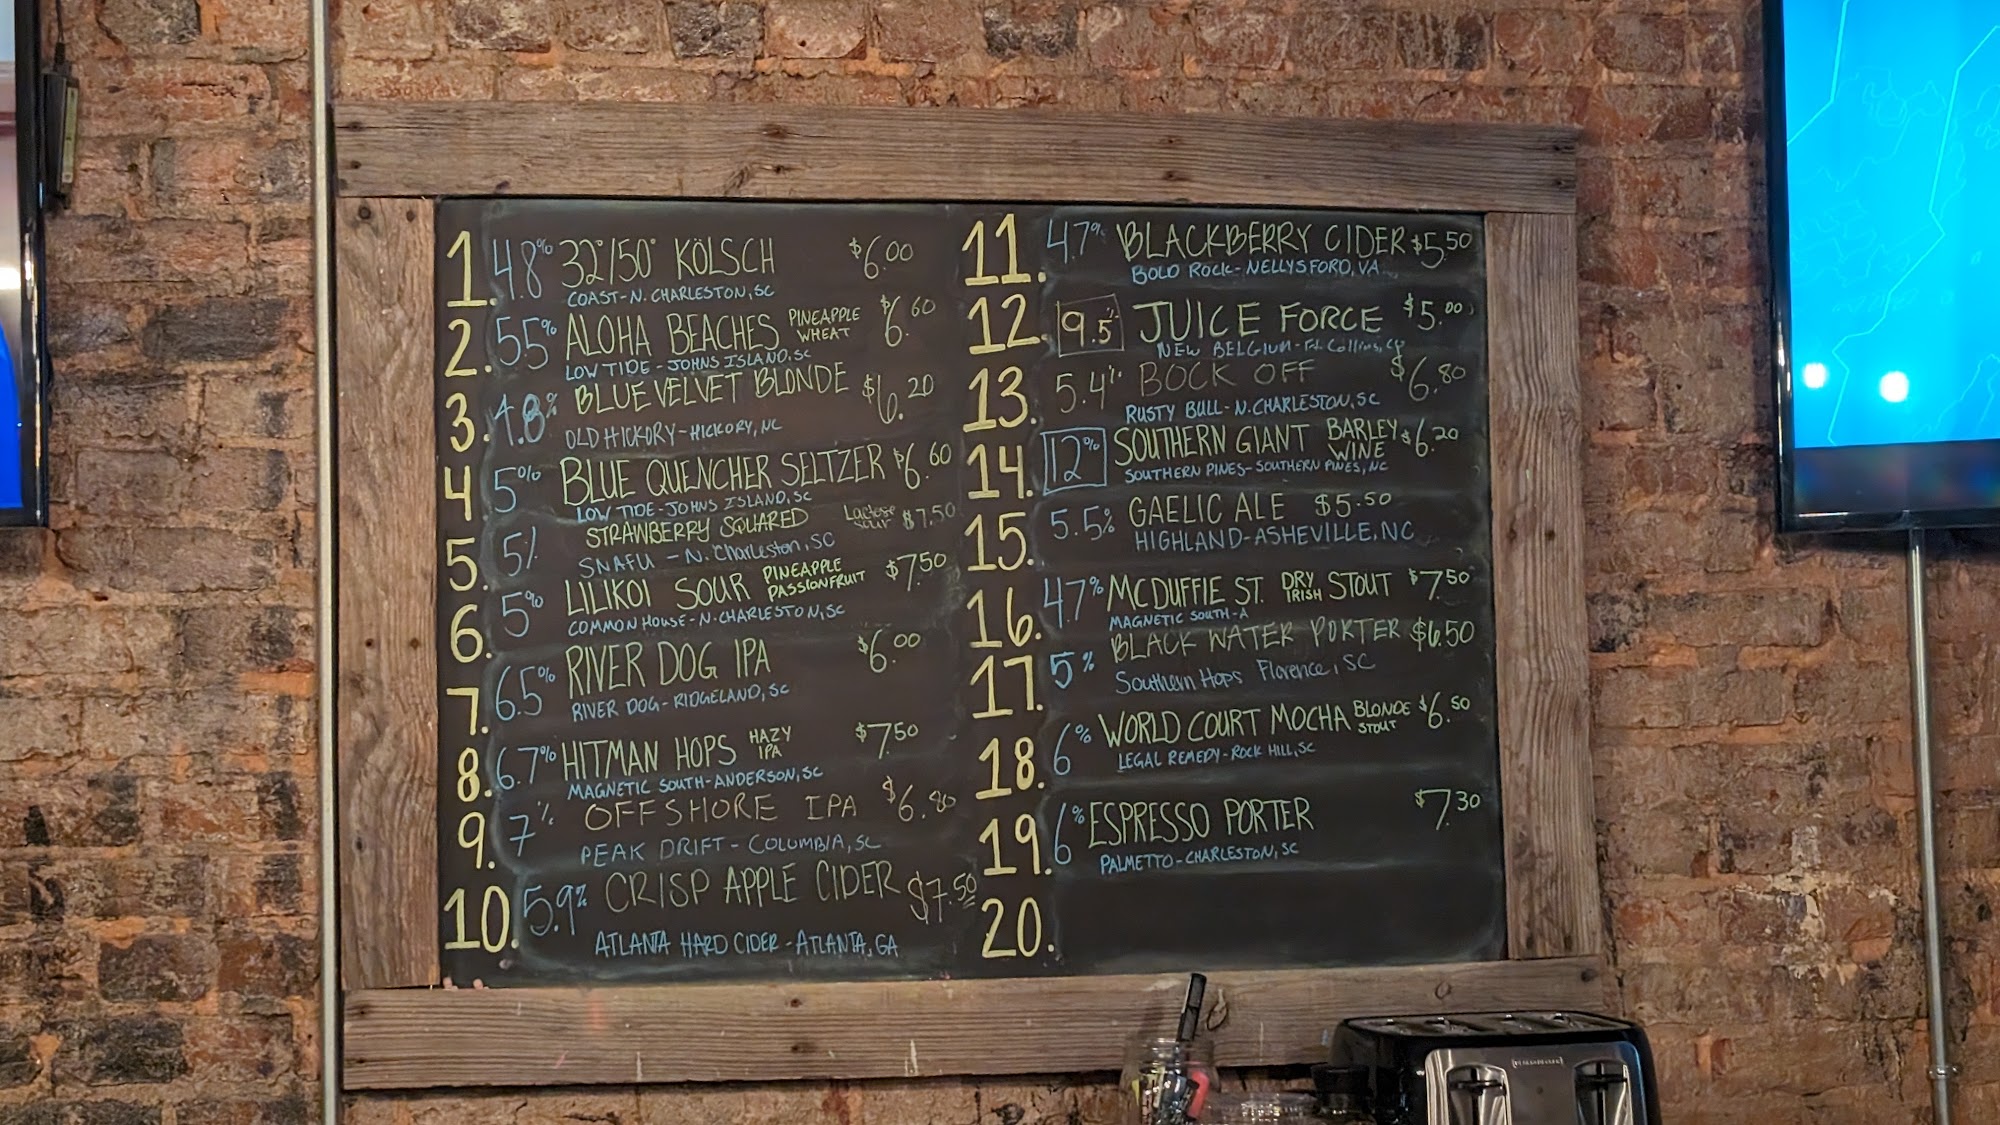 1. 4.8% 32°/50° KÖLSCH $6.00
COAST-N. CHARLESTON, SC
2. 5.5% ALOHA BEACHES PINEAPPLE WHEAT $6.60
LOW TIDE - JOHNS ISLAND, SC
3. 4.8% BLUE VELVET BLONDE $6.20
OLD HICKORY-HICKORY, NC
4. 5% BLUE QUENCHER SELTZER $6.60
LOW TIDE-JOHNS ISLAND, SC
5. 5% STRAWBERRY SQUARED Lactose sour $7.50
SNAFU - N. Charleston, SC
6. 5% LILIKOI SOUR PINEAPPLE PASSIONFRUIT $7.50
COMMON HOUSE-N. CHARLESTON, SC
7. 6.5% RIVER DOG IPA $6.00
RIVER DOG-RIDGELAND, SC
8. 6.7% HITMAN HOPS HAZY IPA $7.50
MAGNETIC SOUTH-ANDERSON, SC
9. 7% OFFSHORE IPA $6.80
PEAK DRIFT - COLUMBIA, SC
10. 5.9% CRISP APPLE CIDER $7.50
ATLANTA HARD CIDER - ATLANTA, GA
11. 4.7% BLACKBERRY CIDER $5.50
BOLD ROCK-NELLYSFORD, VA
12. 9.5% JUICE FORCE $5.00
NEW BELGIUM - Ft. Collins,
13. 5.4% BOCK OFF $6.80
RUSTY BULL-N. CHARLESTON, SC
14. 12% SOUTHERN GIANT BARLEY WINE $6.20
SOUTHERN PINES-SOUTHERN PINES, NC
15. 5.5% GAELIC ALE $5.50
HIGHLAND-ASHEVILLE, NC
16. 4.7% MCDUFFIE ST. DRY IRISH STOUT $7.50
MAGNETIC SOUTH-A
17. 5% BLACK WATER PORTER $6.50
Southern Hops Florence, SC
18. 6% WORLD COURT MOCHA BLONDE STOUT $6.50
LEGAL REMEDY-ROCK HILL, SC
19. 6% ESPRESSO PORTER $7.30
PALMETTO-CHARLESTON, SC
20.